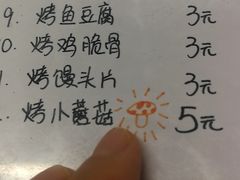 9. 烤鱼豆腐 3元
0. 烤鸡脆骨 3元
1. 烤馒头片 3元
. 烤小蘑菇 5元